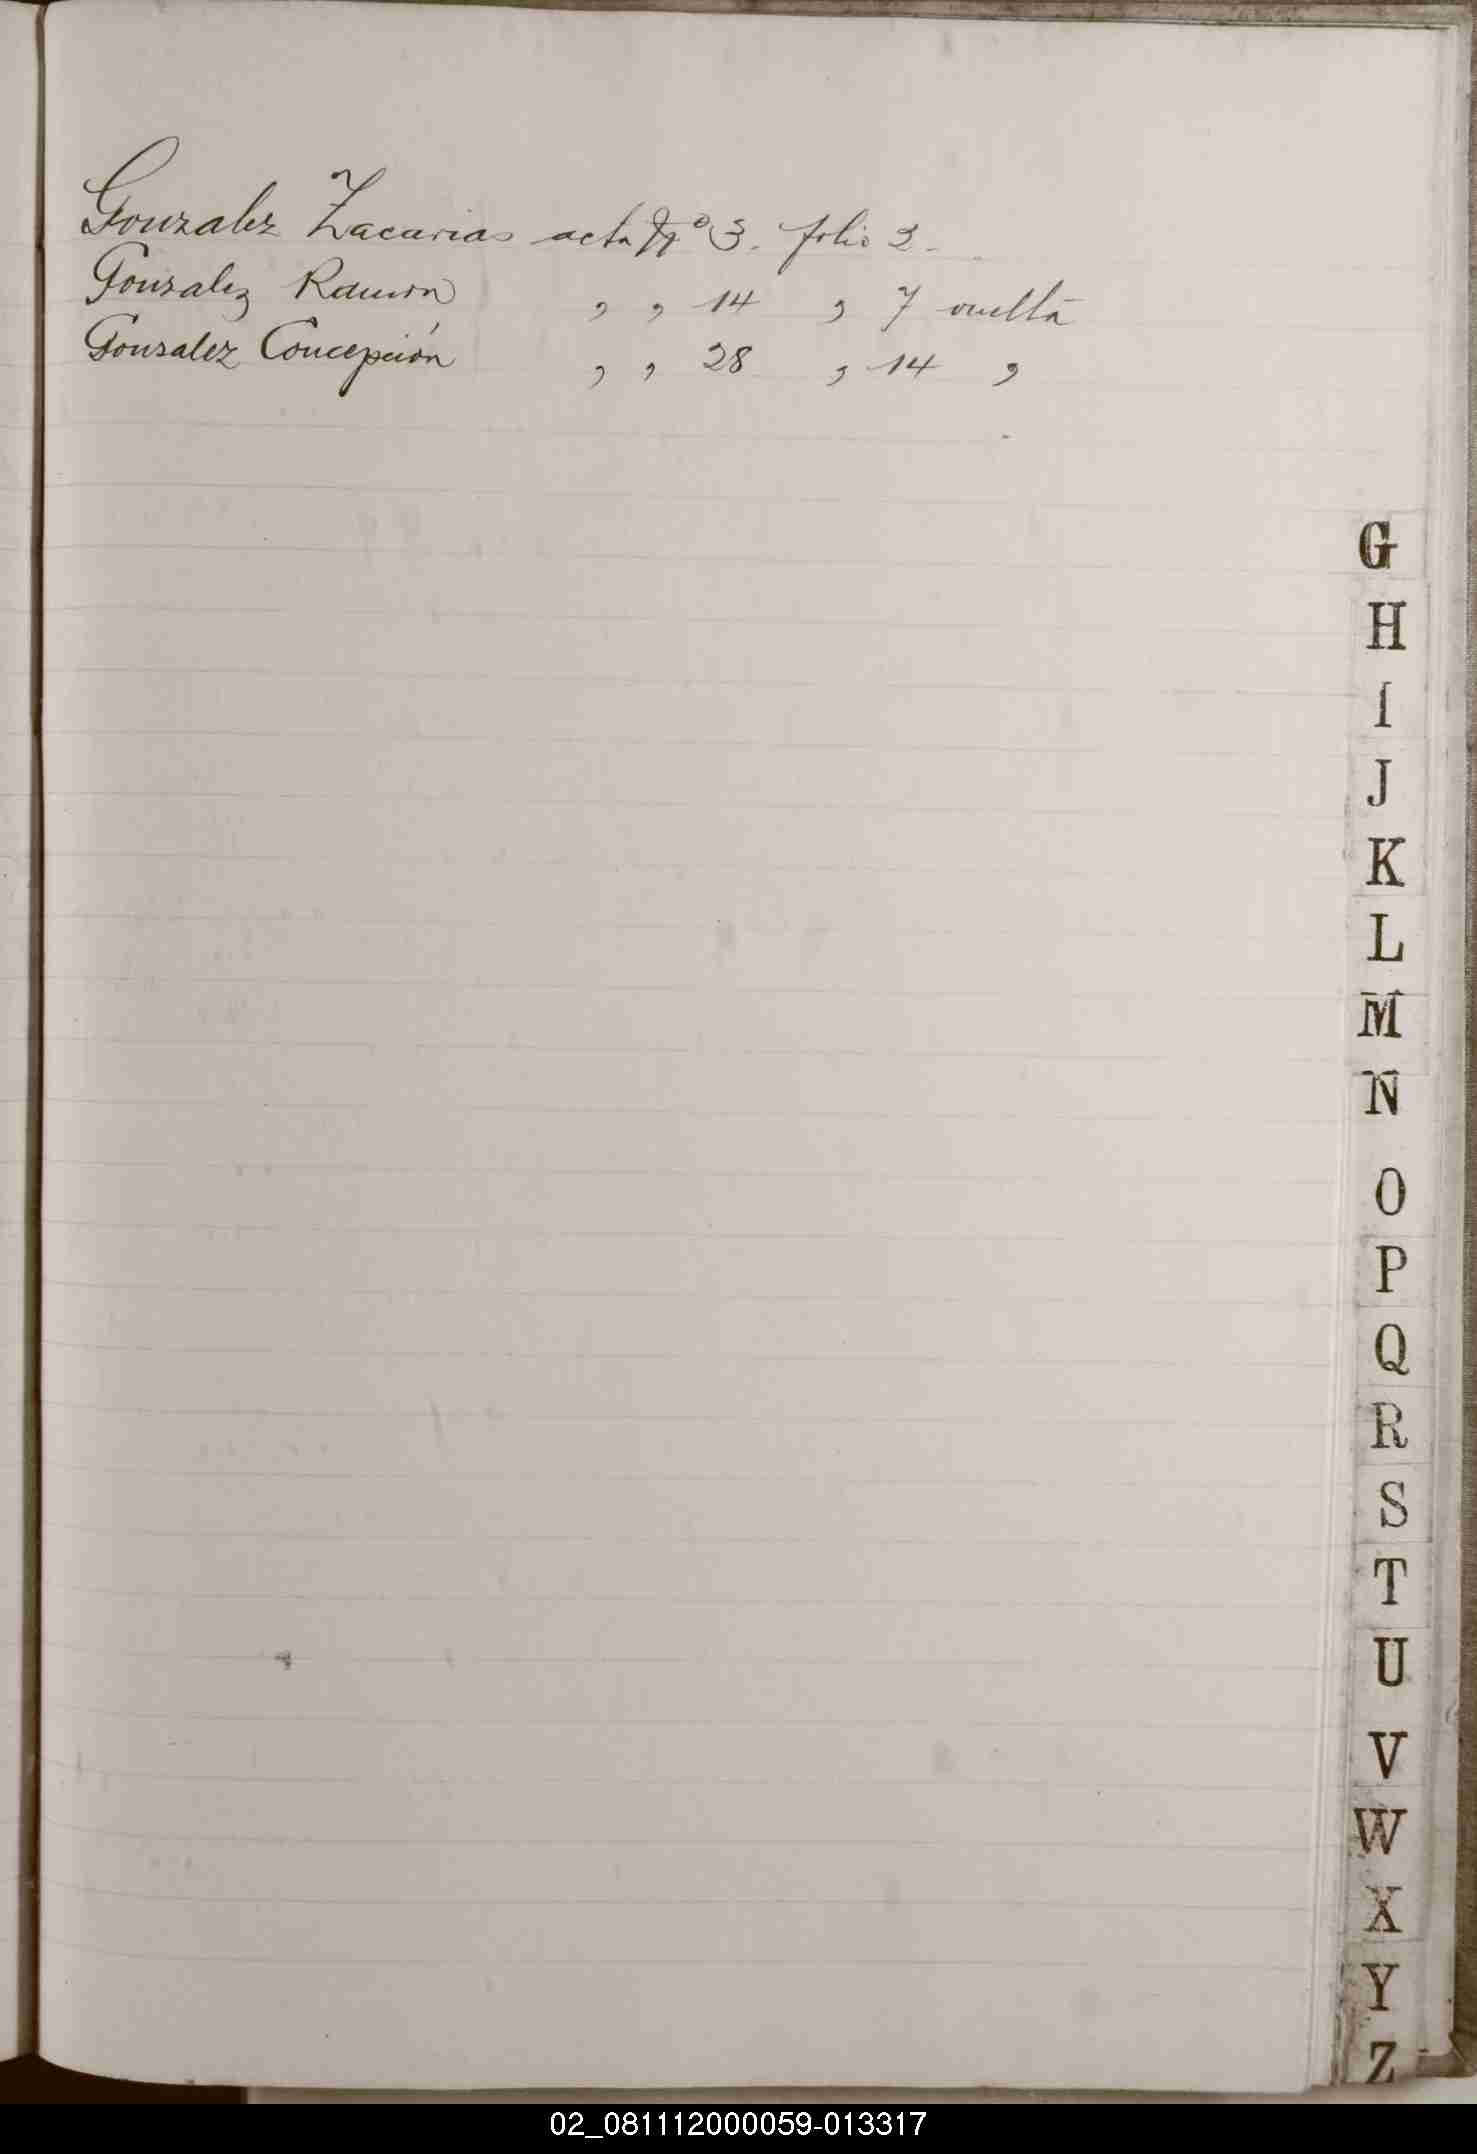 Gonzalez Zacarias acta Nº 3. folio 2.
Gonzalez Ramon , , 14 , 7 vuelta
Gonzalez Concepción , , 28 , 14 ,
G
H
I
J
K
L
M
N
O
P
Q
R
S
T
U
V
W
X
Y
Z
02_081112000059-013317